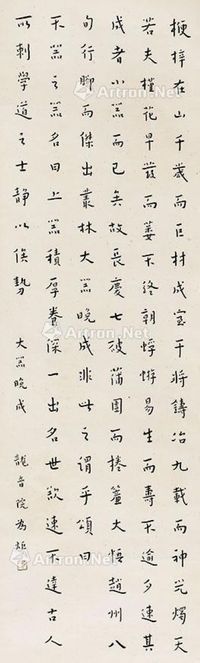 梗梓在山千歲而巨材成宝干将鑄冶九載而神光燭天
若夫槿花早發而萎不終朝蜉蝣易生而壽不逾夕速其
成者小器而已矣故長慶七破蒲團而捲簾大悟趙州八
旬行腳而傑出叢林大器晚成非此之謂乎頌曰
不器之器名曰上器積厚養深一出名世欲速不達古人
所刺學道之士静以俟勢 大器晚成 龍音院為炬
Artron.Net
Artron.Net
Artron.Net